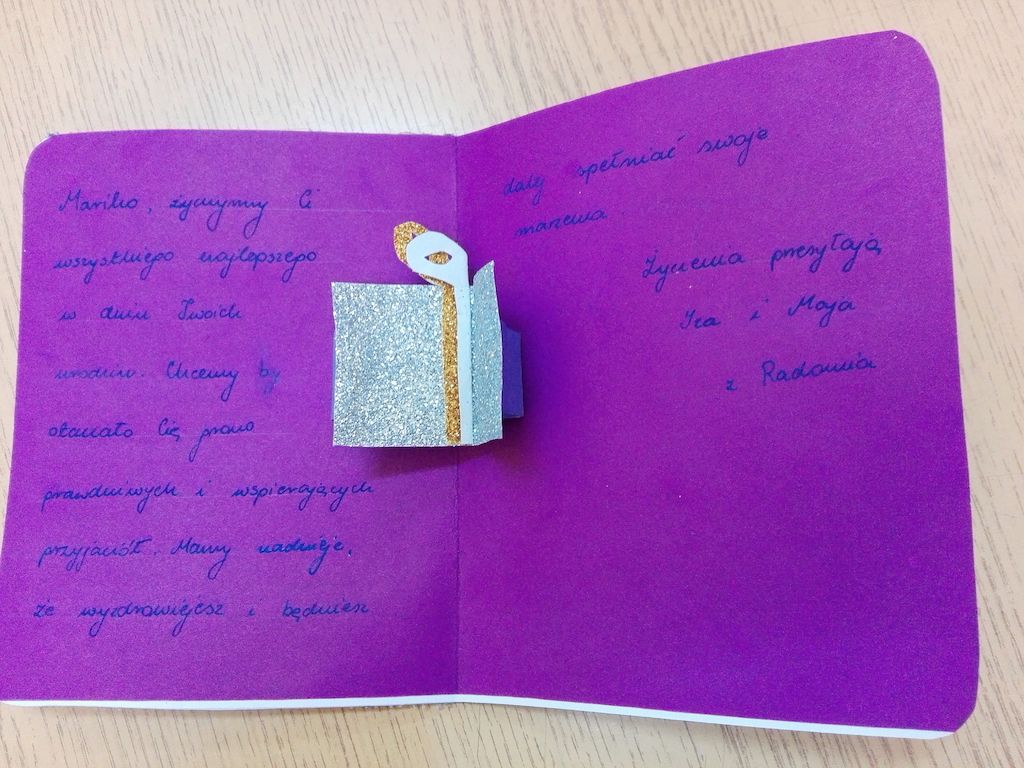 Mariko, życzymy Ci
wszystkiego najlepszego
w dniu Twoich
urodzin. Chcemy by
otaczało Cię grono
prawdziwych i wspierających
przyjaciół. Mamy nadzieję,
że wyzdrowiejesz i będziesz
dalej spełniać swoje
marzenia.
Życzenia przesyłają
Iza i Maja
z Radomia